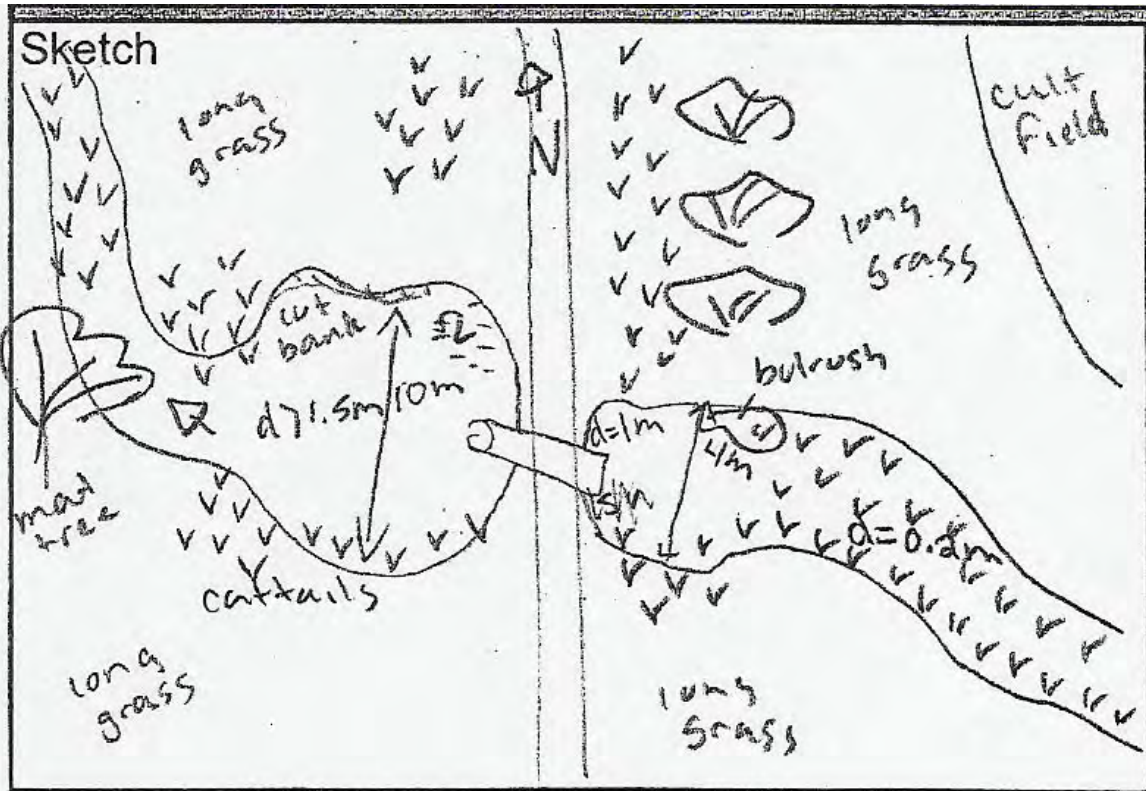 Sketch
long
grass
N
cult
field
long
grass
cut
bank
d>1.5m
10m
bulrush
d=1m
4m
tree
d=0.2m
cattails
long
grass
long
grass